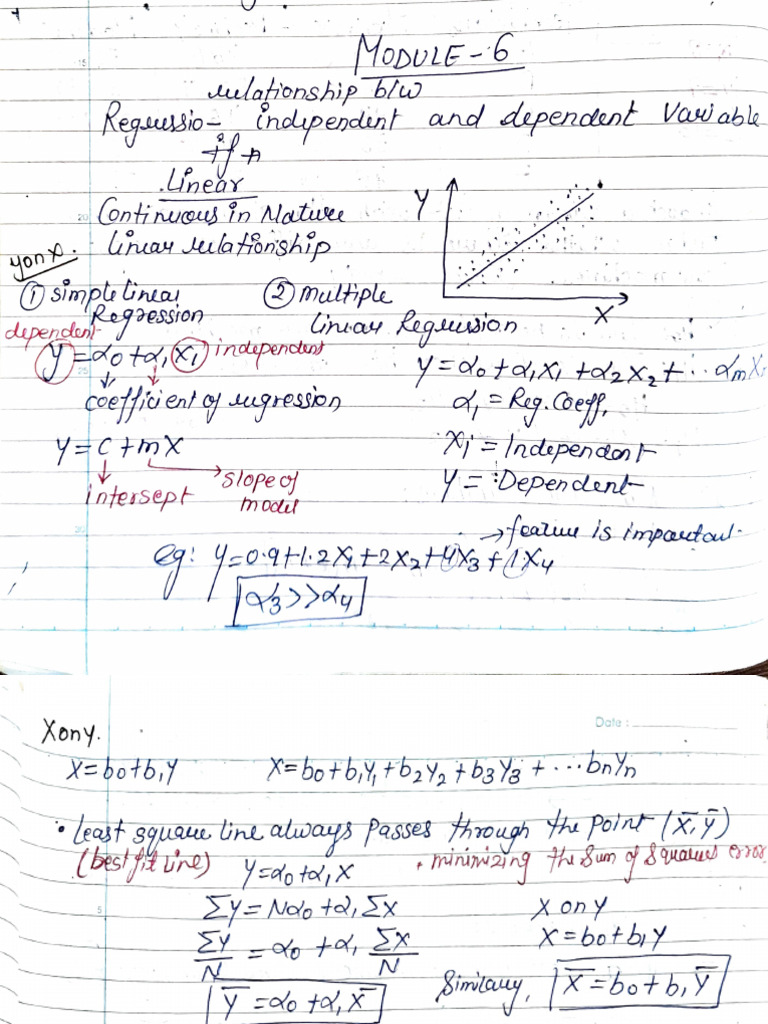 MODULE-6
relationship b/w
Regressio- independent and dependent Variable
if
Linear
Continuous in Nature
linear relationship
Y
X
yonx.
① simple linear Regression
② multiple linear Regression
dependent
y=α0+α1 x1 independent
coefficient of regression
Y = C + mX
intersept
slope of model
Y=α0+α1x1+α2x2+··αmX
α1 = Reg. Coeff.
Xi = Independent
Y = Dependent
→ feature is important.
eg: Y=0.9+1.2X1+2X2+4X3+1X4
α3>>α4
Date:
Xony.
X=b0+b1Y
X=b0+b1Y1+b2Y2+b3Y3+···bnYn
• Least square line always passes through the point (X̄,Ȳ)
(best fit line)
Y=α0+α1X
• minimizing the sum of squares error
ΣY=Nα0+α1ΣX
X on Y
ΣY/N = α0+α1 ΣX/N
X=b0+b1Y
Ȳ=α0+α1X̄
Similary, X̄=b0+b1Ȳ